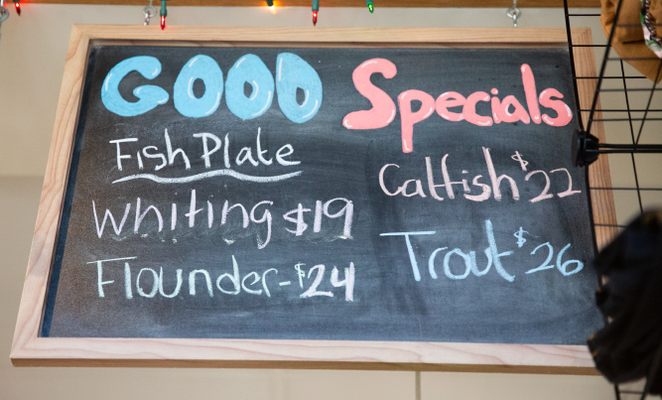 GOOD Specials
Fish Plate
Whiting $19
Flounder-$24
Catfish $22
Trout $26